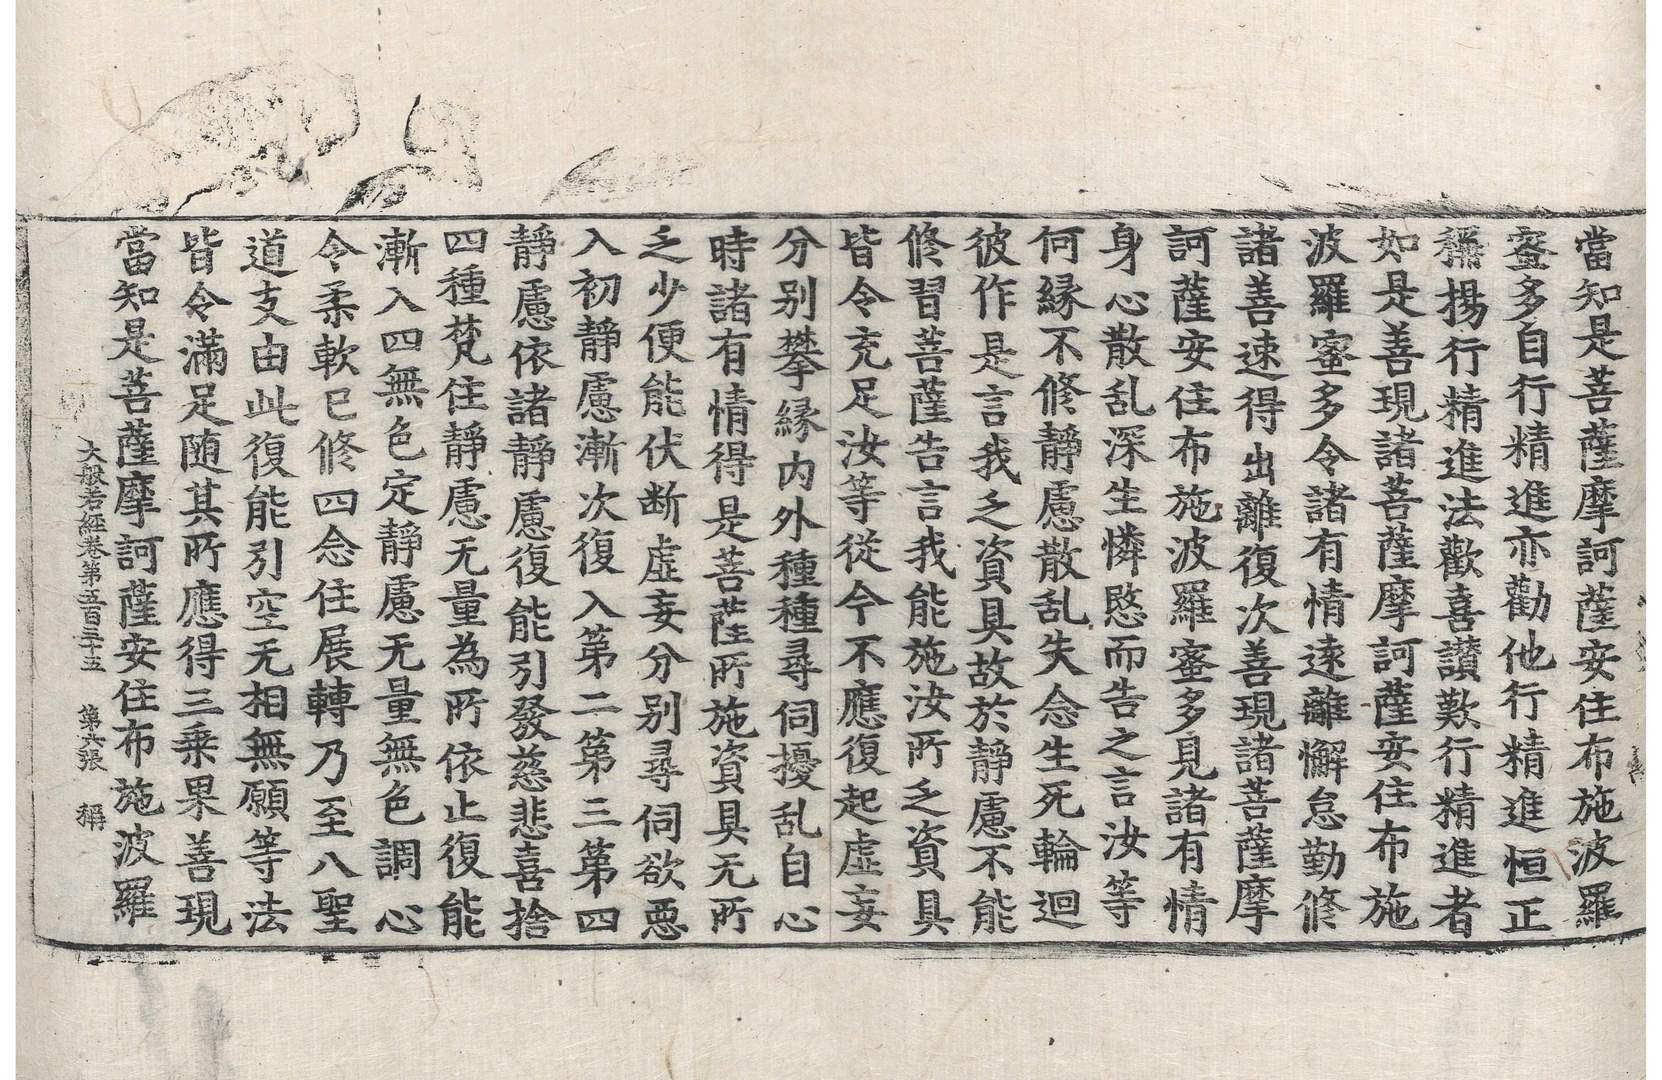 當知是菩薩摩訶薩安住布施波羅
蜜多自行精進亦勸他行精進恒正
稱揚行精進法歡喜讃歎行精進者
如是善現諸菩薩摩訶薩安住布施
波羅蜜多令諸有情遠離懈怠勤修
諸善速得出離復次善現諸菩薩摩
訶薩安住布施波羅蜜多見諸有情
身心散乱深生憐愍而告之言汝等
何縁不修靜慮散乱失念生死輪迴
彼作是言我乏資具故於靜慮不能
修習菩薩告言我能施汝所乏資具
皆令充足汝等從今不應復起虛妄
分別攀縁內外種種尋伺擾乱自心
時諸有情得是菩薩所施資具无所
乏少便能伏断虛妄分別尋伺欲惡
入初靜慮漸次復入第二第三第四
靜慮依諸靜慮復能引發慈悲喜捨
四種梵住靜慮无量為所依止復能
漸入四無色定靜慮无量無色調心
令柔軟已修四念住展轉乃至八聖
道支由此復能引空无相無願等法
皆令滿足随其所應得三乘果善現
當知是菩薩摩訶薩安住布施波羅
大般若經卷第五百三十五 第六張 稱